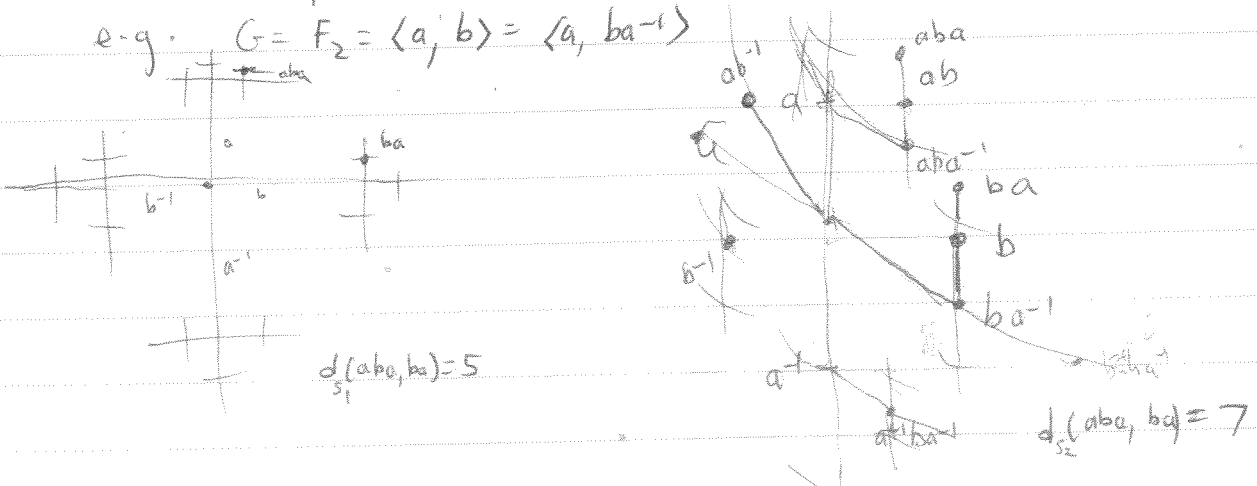 e.g. G = F₂ = ⟨a, b⟩ = ⟨a, ba⁻¹⟩
aba
a
ba
b⁻¹
b
a⁻¹
d_{S₁}(aba, ba) = 5
ab⁻¹
a
aba
ab
aba⁻¹
ba
b
b⁻¹
ba⁻¹
a⁻¹
a⁻¹ba⁻¹
d_{S₂}(aba, ba) = 7